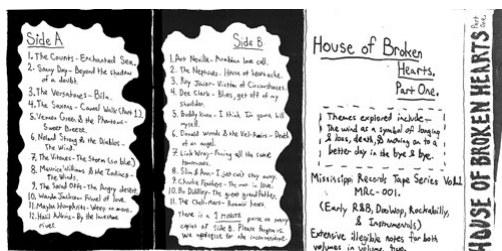 Side A
1. The Counts - Enchanted Sea.
2. Sonny Day - Beyond the shadow
of a doubt.
3. The Versatones - Bila.
4. The Saxons - Camel Walk (Part 1).
5. Vernon Green & the Phantoms -
Sweet Breeze.
6. Noland Strong & the Diablos -
The Wind.
7. The Vitones - The Storm (so blue)
8. Maurice Williams & the Zodiacs -
The Winds.
9. The Sound Offs - The Angry desert.
10. Wanda Jackson - Funnel of love.
11. Magic - weep no more.
12. Hasil Adkins - By the lonesome
river.
Side B
1. Art Neville - Arabian love call.
2. The Neptunes - House of heartache.
3. Roy Junior - Victim of Circumstances.
4. Dee Clark - Blues, get off of my
shoulder.
5. Buddy Knox - I think I'm gonna kill
myself.
6. Donald Woods & the Vel-Aires - Death
of an angel.
7. Link Wray - Facing all the same
tomorrows.
8. Slim & Ann - I just can't stay away.
9. Charlie Feathers - The man in love.
10. Bo Diddley - The great grandfather.
11. The Cheshmans - hearts.
There is a 1 minute pause on many
copies of side B. Please forgive us
We apologize for the inconvenience.
House of Broken
Hearts.
Part One.
Themes explored include -
The wind as a symbol of longing
& loss, death, & moving on to a
better day in the bye & bye.
Mississippi Records Tape Series Vol. 1
MRC-001.
(Early R&B, Doowop, Rockabilly,
& Instrumentals)
Extensive illegible notes for both
volumes in volume two.
HOUSE OF BROKEN HEARTS Part One.